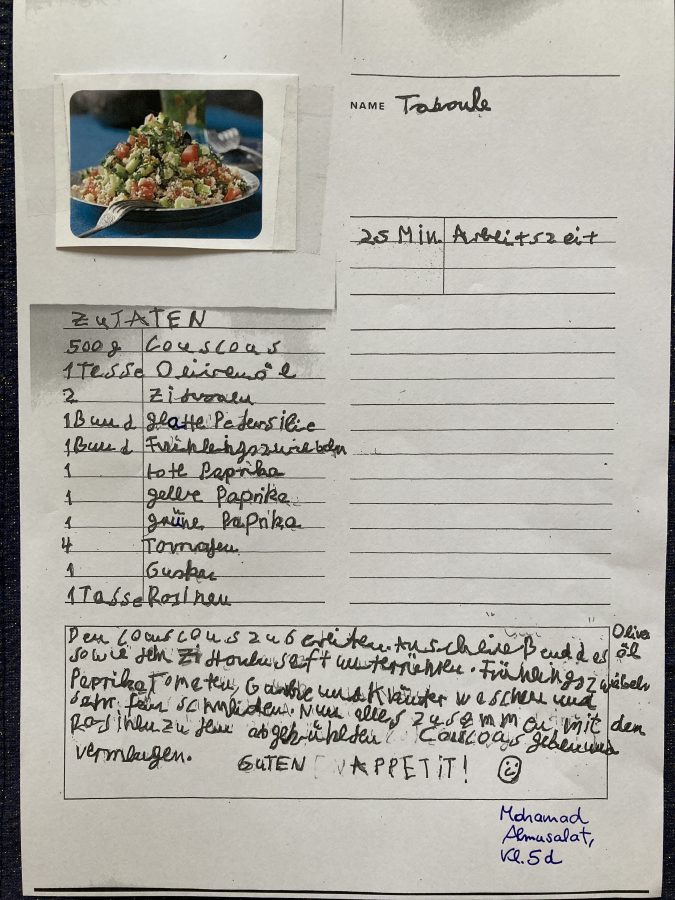 NAME Taboule
25 Min. Arbeitszeit
ZUTATEN
500g Couscous
1 Tesse Olivenöl
2 Zitronen
1 Bund glatte Petersilie
1 Bund Frühlingszwiebeln
1 rote Paprika
1 gelbe Paprika
1 grüne Paprika
4 Tomaten
1 Gurke
1 Tasse Rosinen
Den Couscous zubereiten. Anschließend das Olivenöl
sowie den Zitronensaft unterrühren. Frühlingszwiebeln
Paprika Tomaten, Gurke und Kräuter waschen und
sehr fein schneiden. Nun alles zusammen mit den
Rosinen zu dem abgekühlten Couscous geben und
vermengen. GUTEN APPETIT!
Mohamad
Almusalat,
Kl. 5d